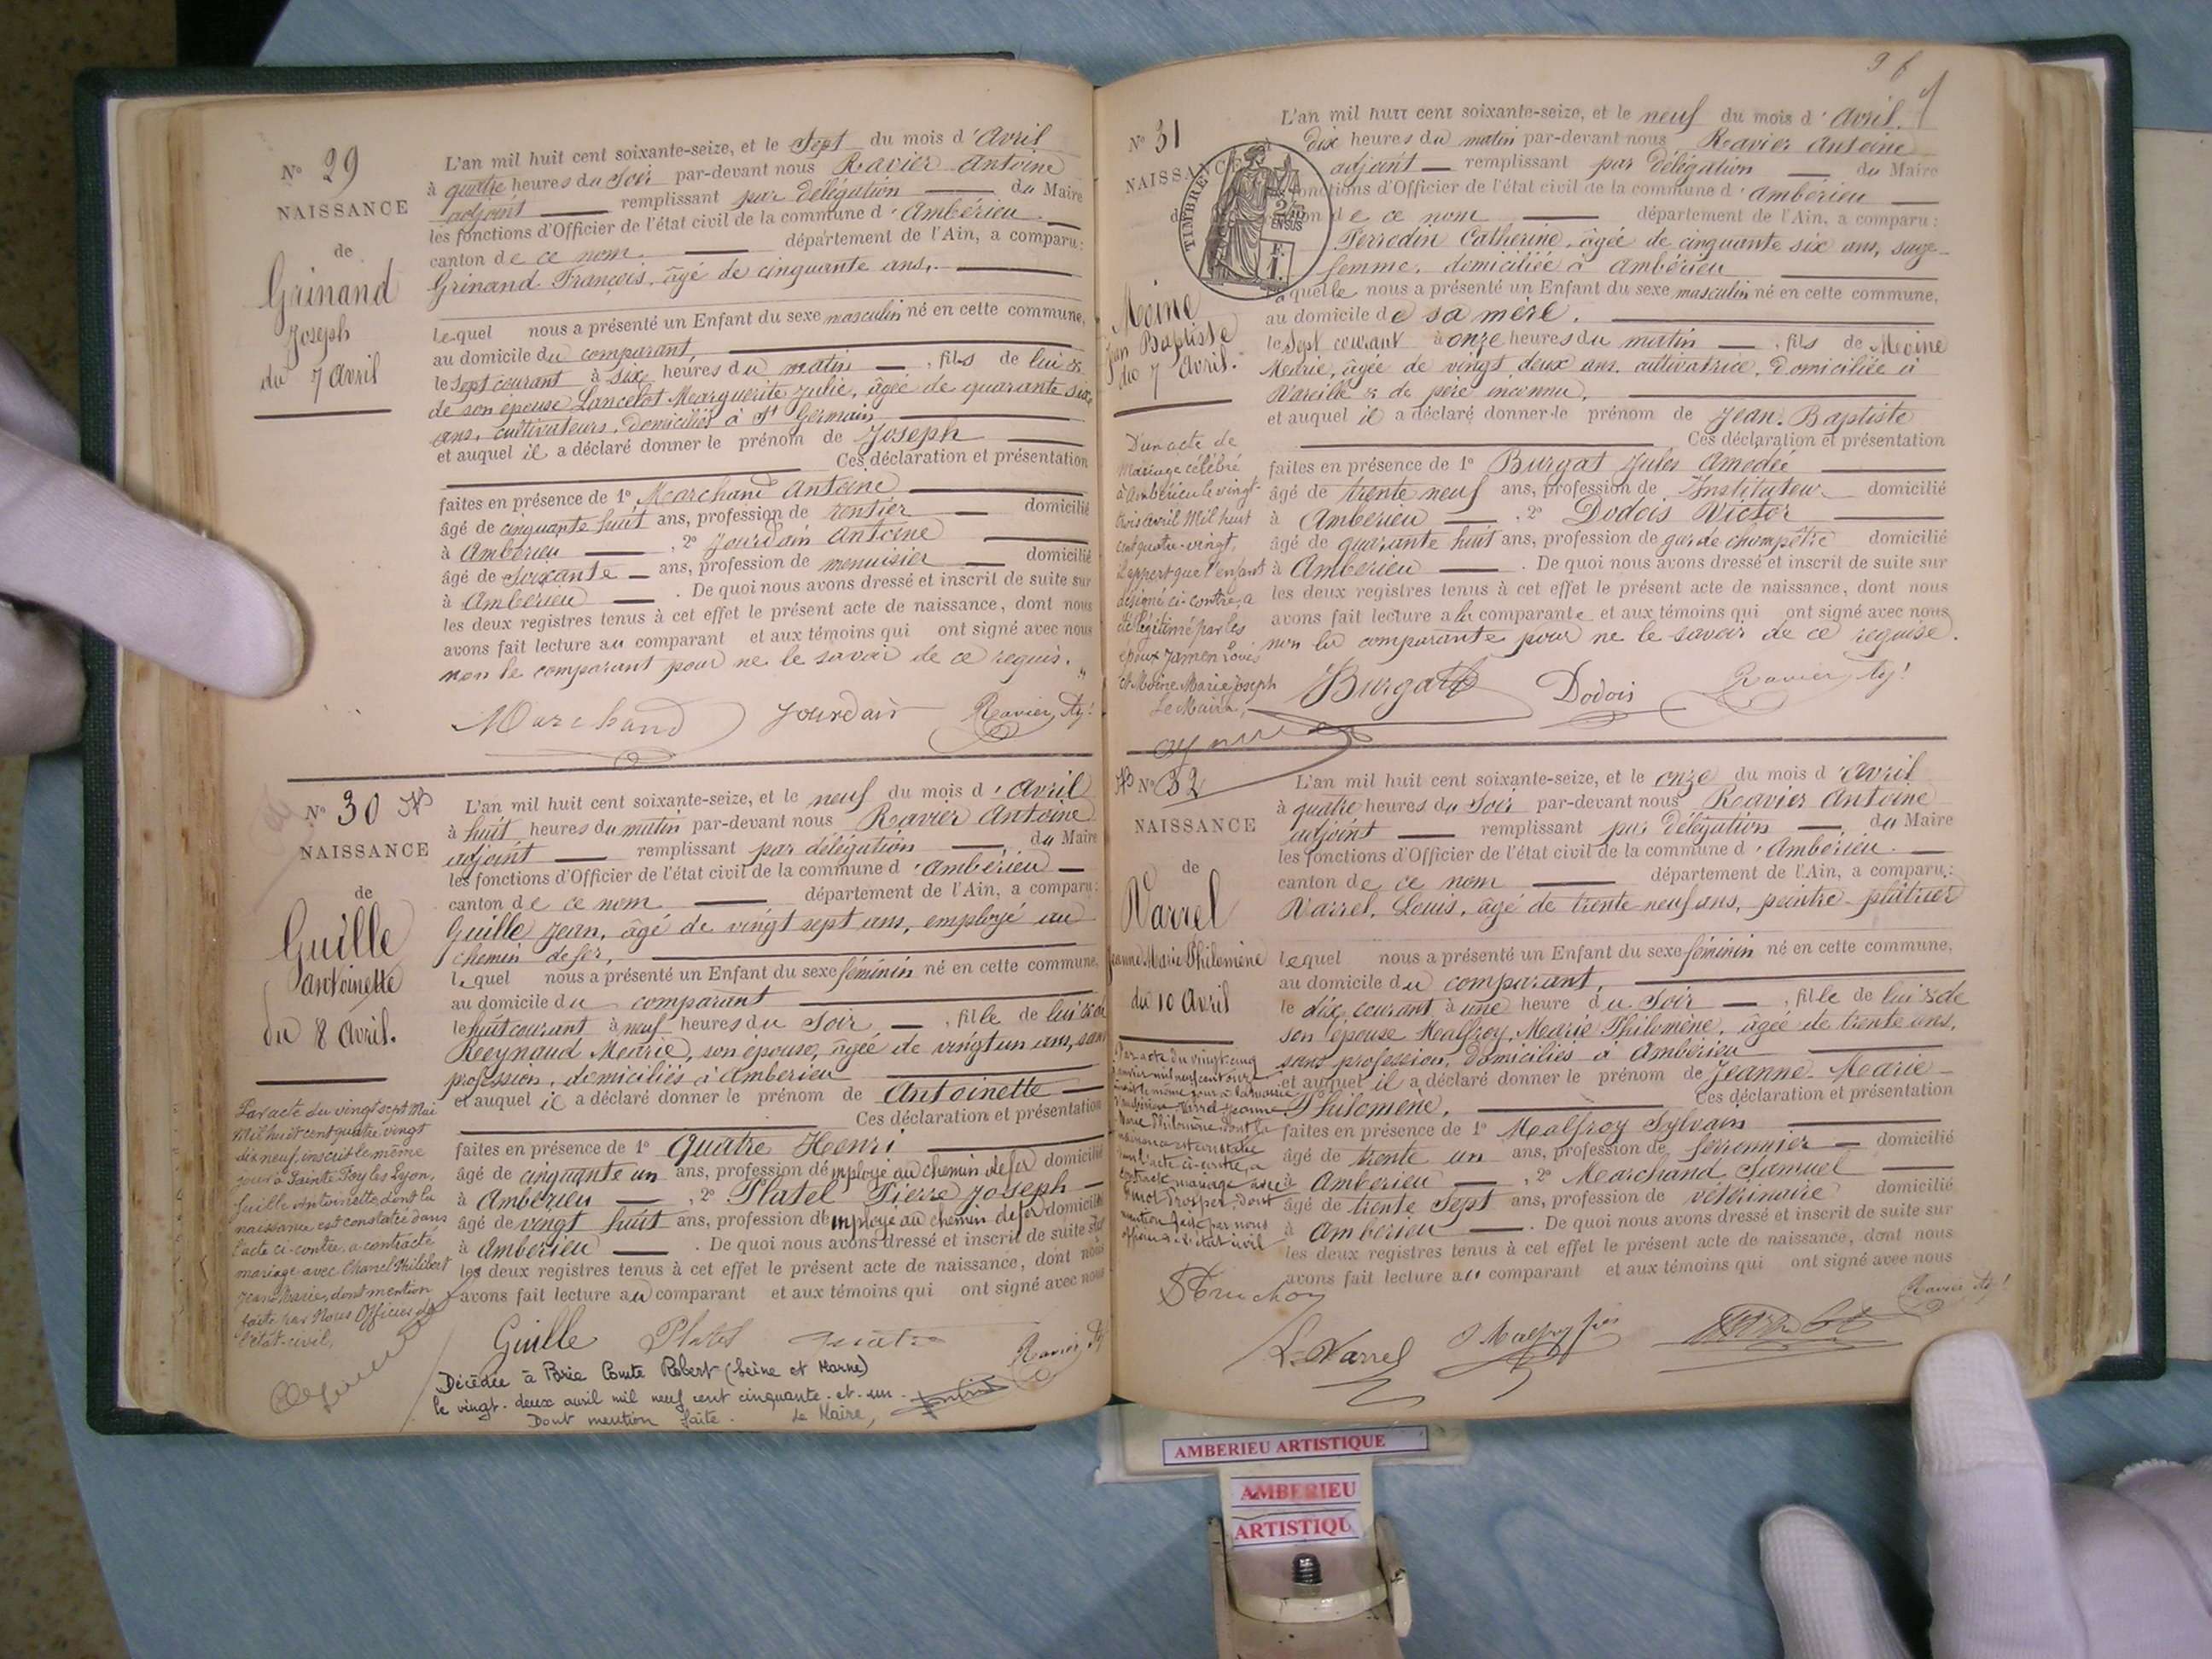 N° 29
NAISSANCE
de
Grinand
Joseph
du 7 Avril
L'an mil huit cent soixante-seize, et le Sept du mois d'Avril
à quatre heures du Soir par-devant nous Ravier Antoine
adjoint remplissant par délégation du Maire
les fonctions d'Officier de l'état civil de la commune d'Ambérieu
canton de ce nom département de l'Ain, a comparu:
Grinand François, âgé de cinquante ans,
Lequel nous a présenté un Enfant du sexe masculin né en cette commune,
au domicile du comparant
le sept courant à six heures du matin , fils de lui &
de son épouse Lancelot Marguerite Julie, âgée de quarante six
ans, cultivateurs, domiciliés à St Germain
et auquel il a déclaré donner le prénom de Joseph
Ces déclaration et présentation
faites en présence de 1° Marchand Antoine
âgé de cinquante huit ans, profession de rentier domicilié
à Ambérieu , 2° Jourdain Antoine
âgé de Soixante ans, profession de menuisier domicilié
à Ambérieu . De quoi nous avons dressé et inscrit de suite sur
les deux registres tenus à cet effet le présent acte de naissance, dont nous
avons fait lecture au comparant et aux témoins qui ont signé avec nous
non le comparant pour ne le savoir de ce requis.
Marchand Jourdain Ravier, adj!
N° 30
NAISSANCE
de
Guille
Antoinette
du 8 Avril.
Par acte du vingt sept Mai
Mil huit cent quatre vingt
dix neuf, inscrit le même
jour à Sainte Foy les Lyon,
Guille Antoinette dont la
naissance est constatée dans
l'acte ci-contre, a contracté
mariage avec Chanel Philibert
Jean Marie, dont mention
faite par Nous Officier de
l'état-civil,
L'an mil huit cent soixante-seize, et le neuf du mois d'Avril
à huit heures du matin par-devant nous Ravier Antoine
adjoint remplissant par délégation du Maire
les fonctions d'Officier de l'état civil de la commune d'Ambérieu
canton de ce nom département de l'Ain, a comparu:
Guille Jean, âgé de vingt sept ans, employé au
chemin de fer,
lequel nous a présenté un Enfant du sexe féminin né en cette commune,
au domicile du comparant
le huit courant à neuf heures du Soir , fille de lui & de
Reynaud Marie, son épouse, âgée de vingt un ans, sans
profession, domiciliés à Ambérieu
et auquel il a déclaré donner le prénom de Antoinette
Ces déclaration et présentation
faites en présence de 1° Quatre Henri
âgé de cinquante un ans, profession d'employé au chemin de fer domicilié
à Ambérieu , 2° Platel Pierre Joseph
âgé de vingt huit ans, profession d'employé au chemin de fer domicilié
à Ambérieu . De quoi nous avons dressé et inscrit de suite sur
les deux registres tenus à cet effet le présent acte de naissance, dont nous
avons fait lecture au comparant et aux témoins qui ont signé avec nous
Guille Platel quatre Ravier adj
Décédée à Brie Comte Robert (Seine et Marne)
le vingt-deux avril mil neuf cent cinquante-et-un.
Dont mention faite. Le Maire,
96
N° 31
NAISSANCE
TIMBRE
2/10 EN SUS
Moine
Jean Baptiste
du 7 Avril.
D'un acte de
Mariage célébré
à Ambérieu le vingt-
trois avril Mil huit
cent quatre-vingt,
il appert que l'enfant
désigné ci-contre, a
été légitimé par les
époux Jamen Louis
et Moine Marie Joseph
Le Maire,
L'an mil huit cent soixante-seize, et le neuf du mois d'Avril,
dix heures du matin par-devant nous Ravier Antoine
adjoint remplissant par délégation du Maire
fonctions d'Officier de l'état civil de la commune d'Ambérieu
de ce nom département de l'Ain, a comparu:
Ferrodin Catherine, âgée de cinquante six ans, sage-
femme, domiciliée à Ambérieu
Laquelle nous a présenté un Enfant du sexe masculin né en cette commune,
au domicile de sa mère.
le Sept courant à onze heures du matin , fils de Moine
Marie, âgée de vingt deux ans, cultivatrice, domiciliée à
Vareille & de père inconnu.
et auquel il a déclaré donner le prénom de Jean-Baptiste
Ces déclaration et présentation
faites en présence de 1° Burgat Jules Amédée
âgé de trente neuf ans, profession de Instituteur domicilié
à Ambérieu , 2° Dodois Victor
âgé de quarante huit ans, profession de garde champêtre domicilié
à Ambérieu . De quoi nous avons dressé et inscrit de suite sur
les deux registres tenus à cet effet le présent acte de naissance, dont nous
avons fait lecture à la comparante et aux témoins qui ont signé avec nous
non la comparante pour ne le savoir de ce requise.
Burgat Dodois Ravier, adj!
N° 32
NAISSANCE
de
Varrel
Jeanne Marie Philomène
du 10 Avril
Par acte du vingt cinq
janvier mil neuf cent onze
inscrit le même jour à la mairie
d'Ambérieu Varrel Jeanne
Marie Philomène dont la
naissance est constatée
dans l'acte ci-contre, a
contracté mariage avec
Prosper, dont
mention faite par nous
officier de l'état civil
L'an mil huit cent soixante-seize, et le onze du mois d'Avril
à quatre heures du Soir par-devant nous Ravier Antoine
adjoint remplissant par délégation du Maire
les fonctions d'Officier de l'état civil de la commune d'Ambérieu.
canton de ce nom département de l'Ain, a comparu:
Varrel, Louis, âgé de trente neuf ans, peintre-plâtrier
lequel nous a présenté un Enfant du sexe féminin né en cette commune,
au domicile du comparant,
le dix courant à une heure du Soir , fille de lui & de
son épouse Malfroy, Marie Philomène, âgée de trente ans,
sans profession, domiciliés à Ambérieu
et auquel il a déclaré donner le prénom de Jeanne-Marie-
Philomène. Ces déclaration et présentation
faites en présence de 1° Malfroy Sylvain
âgé de trente un ans, profession de ferronnier domicilié
à Ambérieu , 2° Marchand Samuel
âgé de trente Sept ans, profession de vétérinaire domicilié
à Ambérieu . De quoi nous avons dressé et inscrit de suite sur
les deux registres tenus à cet effet le présent acte de naissance, dont nous
avons fait lecture au comparant et aux témoins qui ont signé avec nous
Ravier adj!
L. Varrel S Malfroy fils
AMBERIEU ARTISTIQUE
AMBERIEU
ARTISTIQU